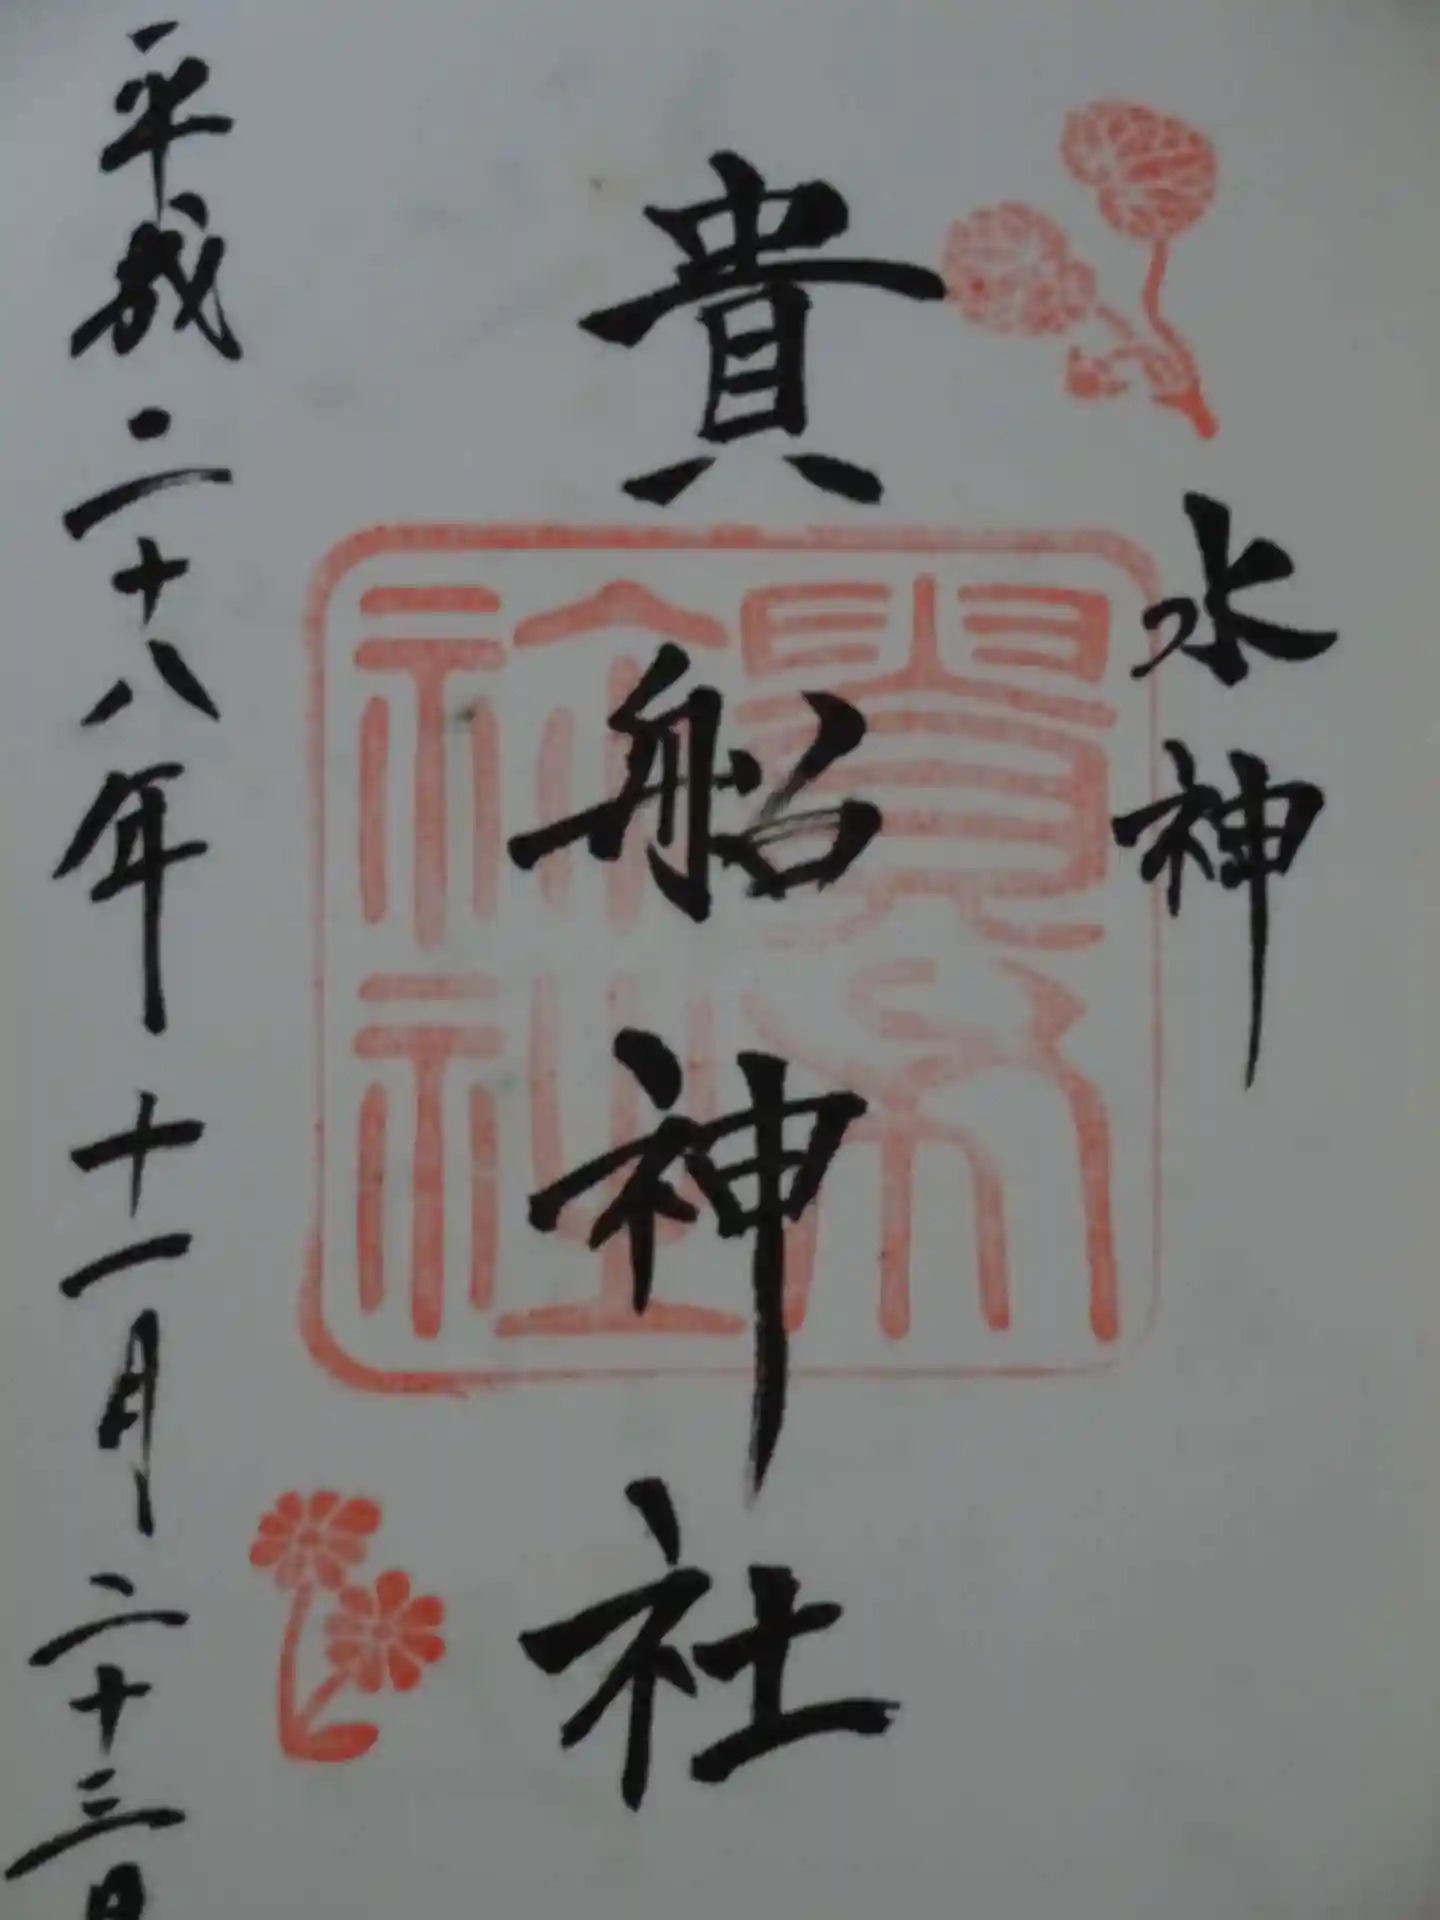 水神
貴船神社
貴船神社
平成二十八年十一月二十三日